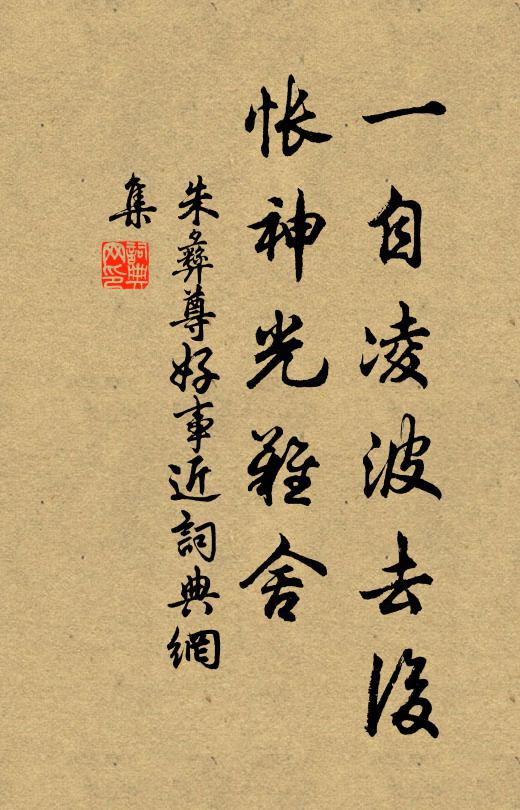 一自凌波去後
悵神光難舍
朱彝尊好事近詞典網
集
詞典
网印